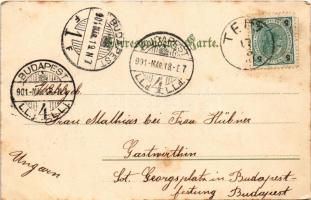 Correspondenz-Karte.
BUDAPEST
901 MÁR 19 N 7
BUDAPEST
901-MÁR.18-E7
BUDAPEST
901-MÁR
TE
Frau Mathias bei Frau Hübner
Gastwirthin
Ungarn
Sct. Georgsplatz in Budapest-
festung Budapest